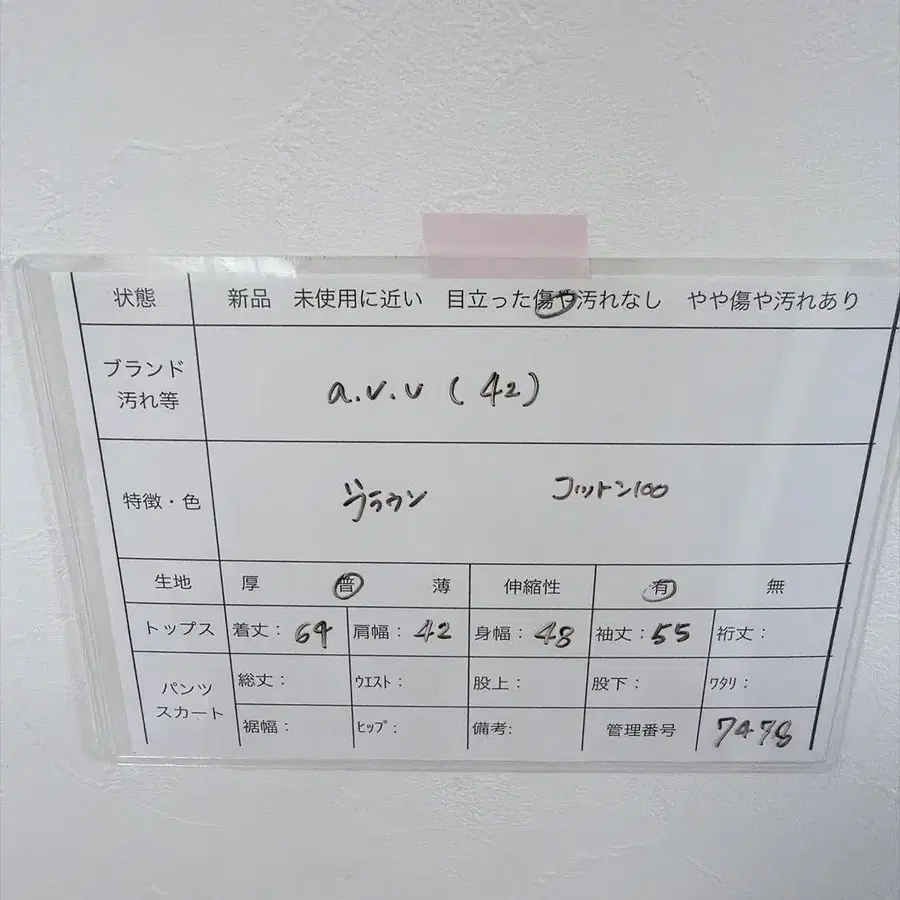 状態 新品 未使用に近い 目立った傷や汚れなし やや傷や汚れあり
ブランド
汚れ等
a.v.v (42)
特徴・色 ブラウン コットン100
生地 厚 普 薄 伸縮性 有 無
トップス 着丈: 64 肩幅: 42 身幅: 48 袖丈: 55 裄丈:
パンツ
スカート
総丈: ウエスト: 股上: 股下: ワタリ:
裾幅: ヒップ: 備考: 管理番号 7478